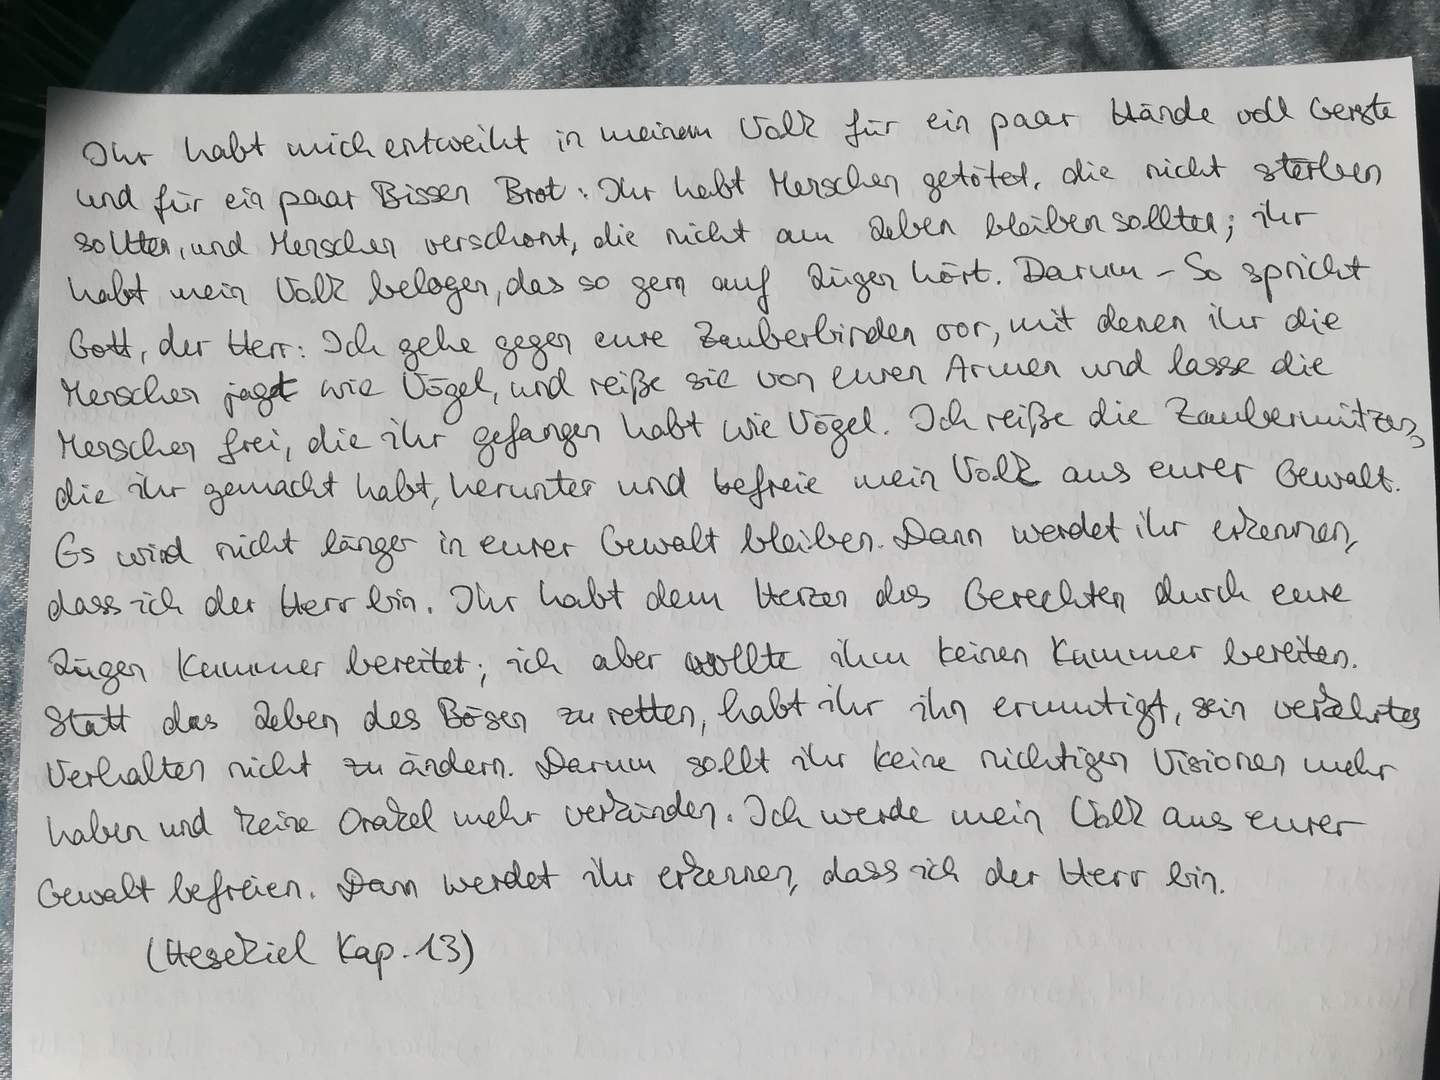 Ihr habt mich entweiht in meinem Volk für ein paar Hände voll Gerste
und für ein paar Bissen Brot: Ihr habt Menschen getötet, die nicht sterben
sollten, und Menschen verschont, die nicht am Leben bleiben sollten; ihr
habt mein Volk belogen, das so gern auf Lügen hört. Darum - So spricht
Gott, der Herr: Ich gehe gegen eure Zauberbinden vor, mit denen ihr die
Menschen jagt wie Vögel, und reiße sie von euren Armen und lasse die
Menschen frei, die ihr gefangen habt wie Vögel. Ich reiße die Zaubermützen,
die ihr gemacht habt, herunter und befreie mein Volk aus eurer Gewalt.
Es wird nicht länger in eurer Gewalt bleiben. Dann werdet ihr erkennen,
dass ich der Herr bin. Ihr habt dem Herzen des Gerechten durch eure
Lügen Kummer bereitet; ich aber wollte ihm keinen Kummer bereiten.
Statt das Leben des Bösen zu retten, habt ihr ihn ermutigt, sein verkehrtes
Verhalten nicht zu ändern. Darum sollt ihr keine nichtigen Visionen mehr
haben und keine Orakel mehr verkünden. Ich werde mein Volk aus eurer
Gewalt befreien. Dann werdet ihr erkennen, dass ich der Herr bin.
(Hesekiel Kap. 13)